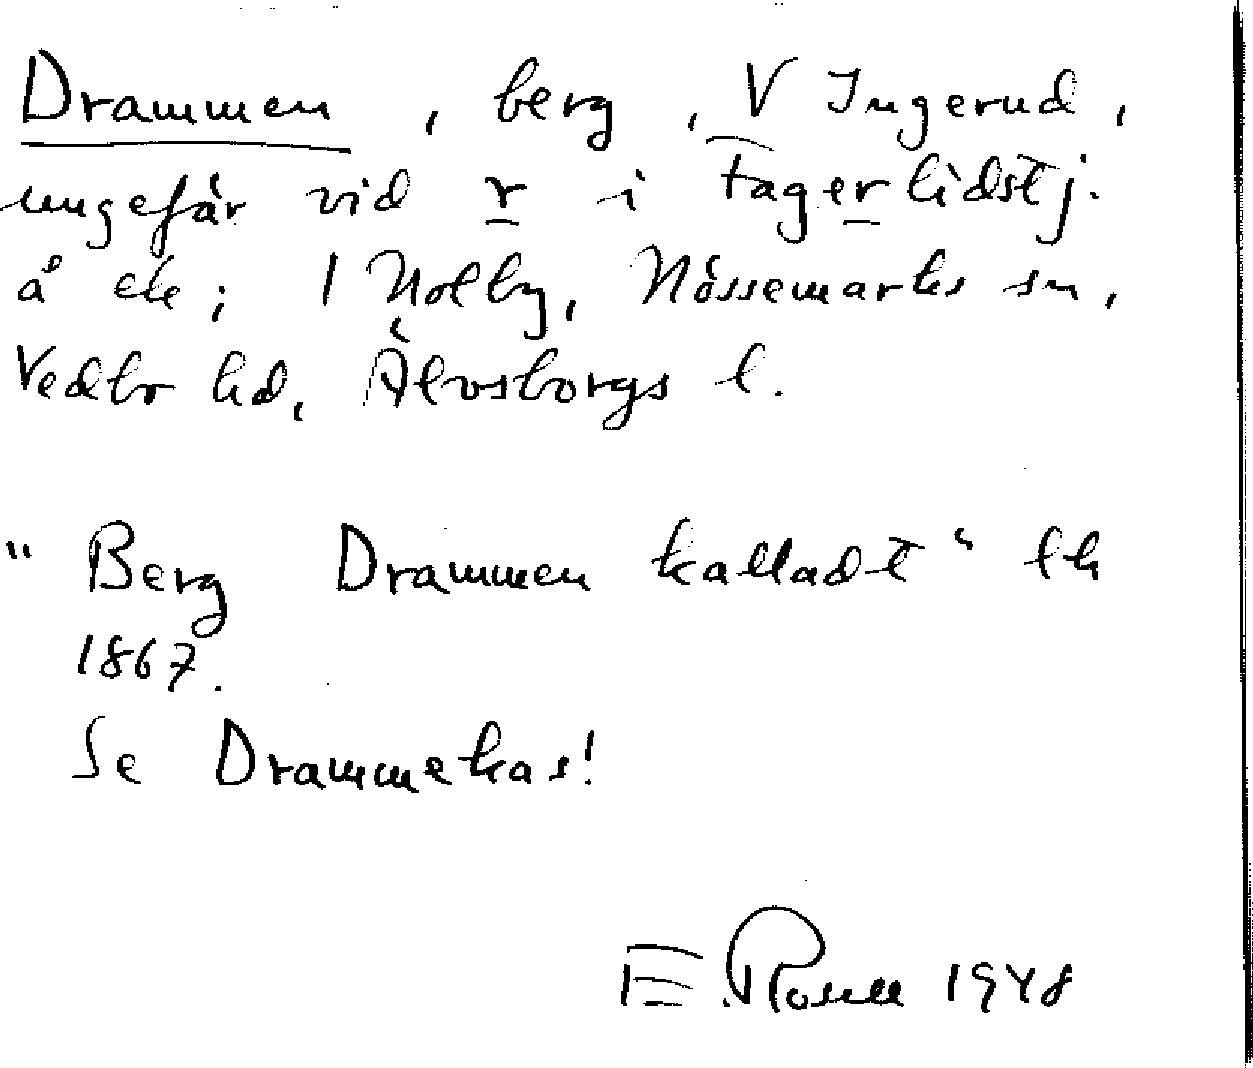 Drammen, berg, V Ingerud,
ungefär vid r i Fagerlidstj.
å ek; 1 Nolby, Nössemarks sn,
Vedbo hd, Älvsborgs l.
"Berg Drammen kalladt" lh
1867.
Se Drammekas!
E. 1948